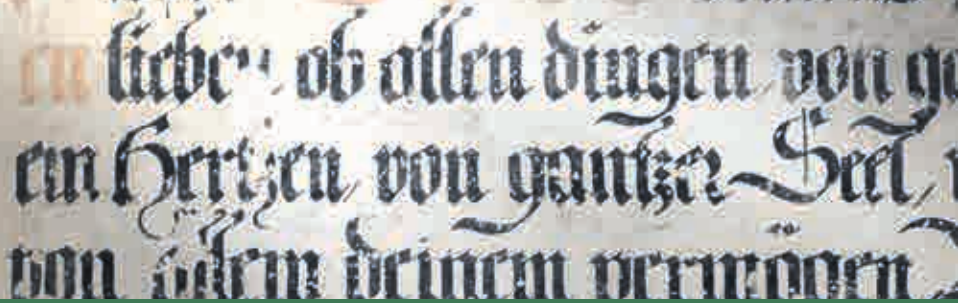 lieben ob allen dingen von
ein Hertzen, von gantzer Seel,
von allem deinem vermögen